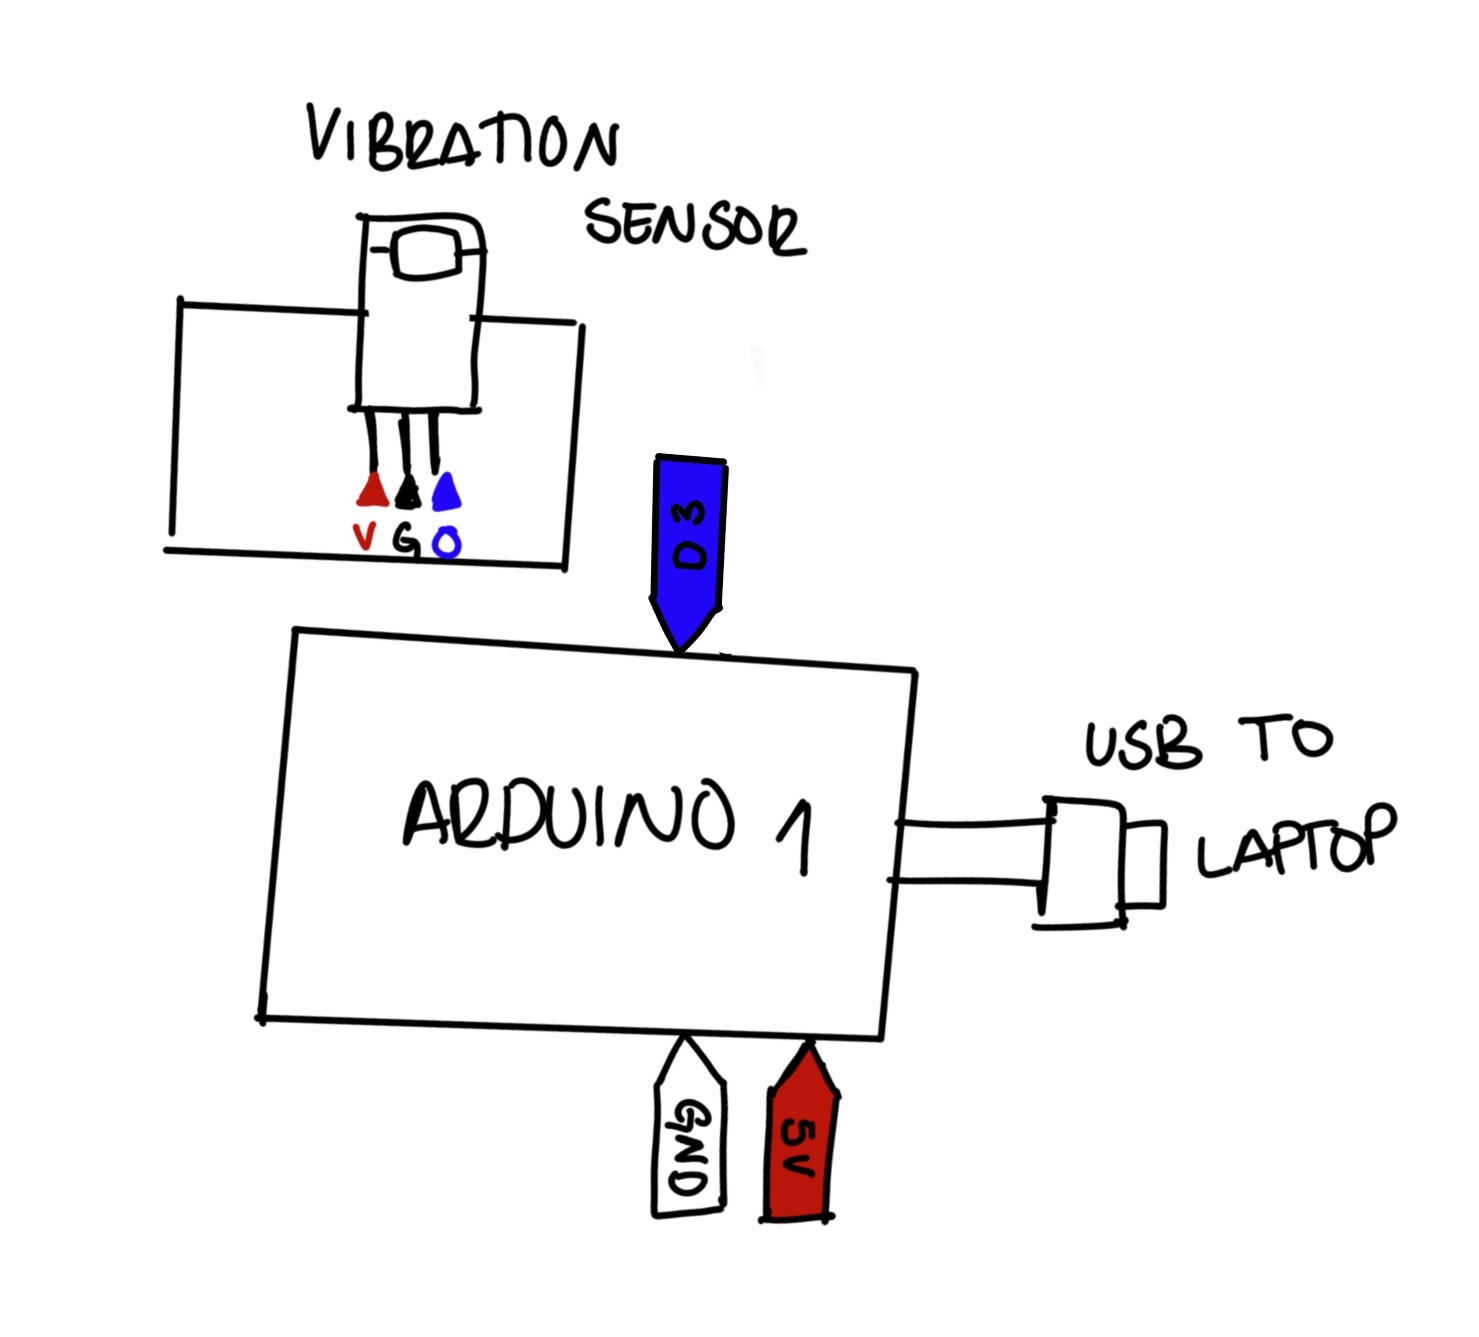 VIBRATION
SENSOR
V G O
D3
ARDUINO 1
USB TO
LAPTOP
GND
5V